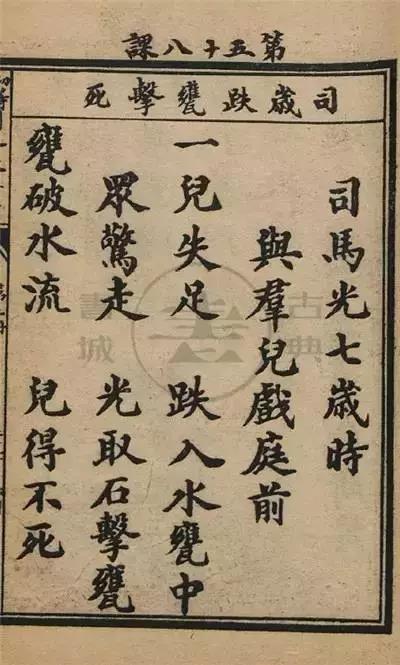 第五十八課
司歲跌甕擊死
司馬光七歲時
與羣兒戲庭前
一兒失足 跌入水甕中
眾驚走 光取石擊甕
甕破水流 兒得不死
古典
書城